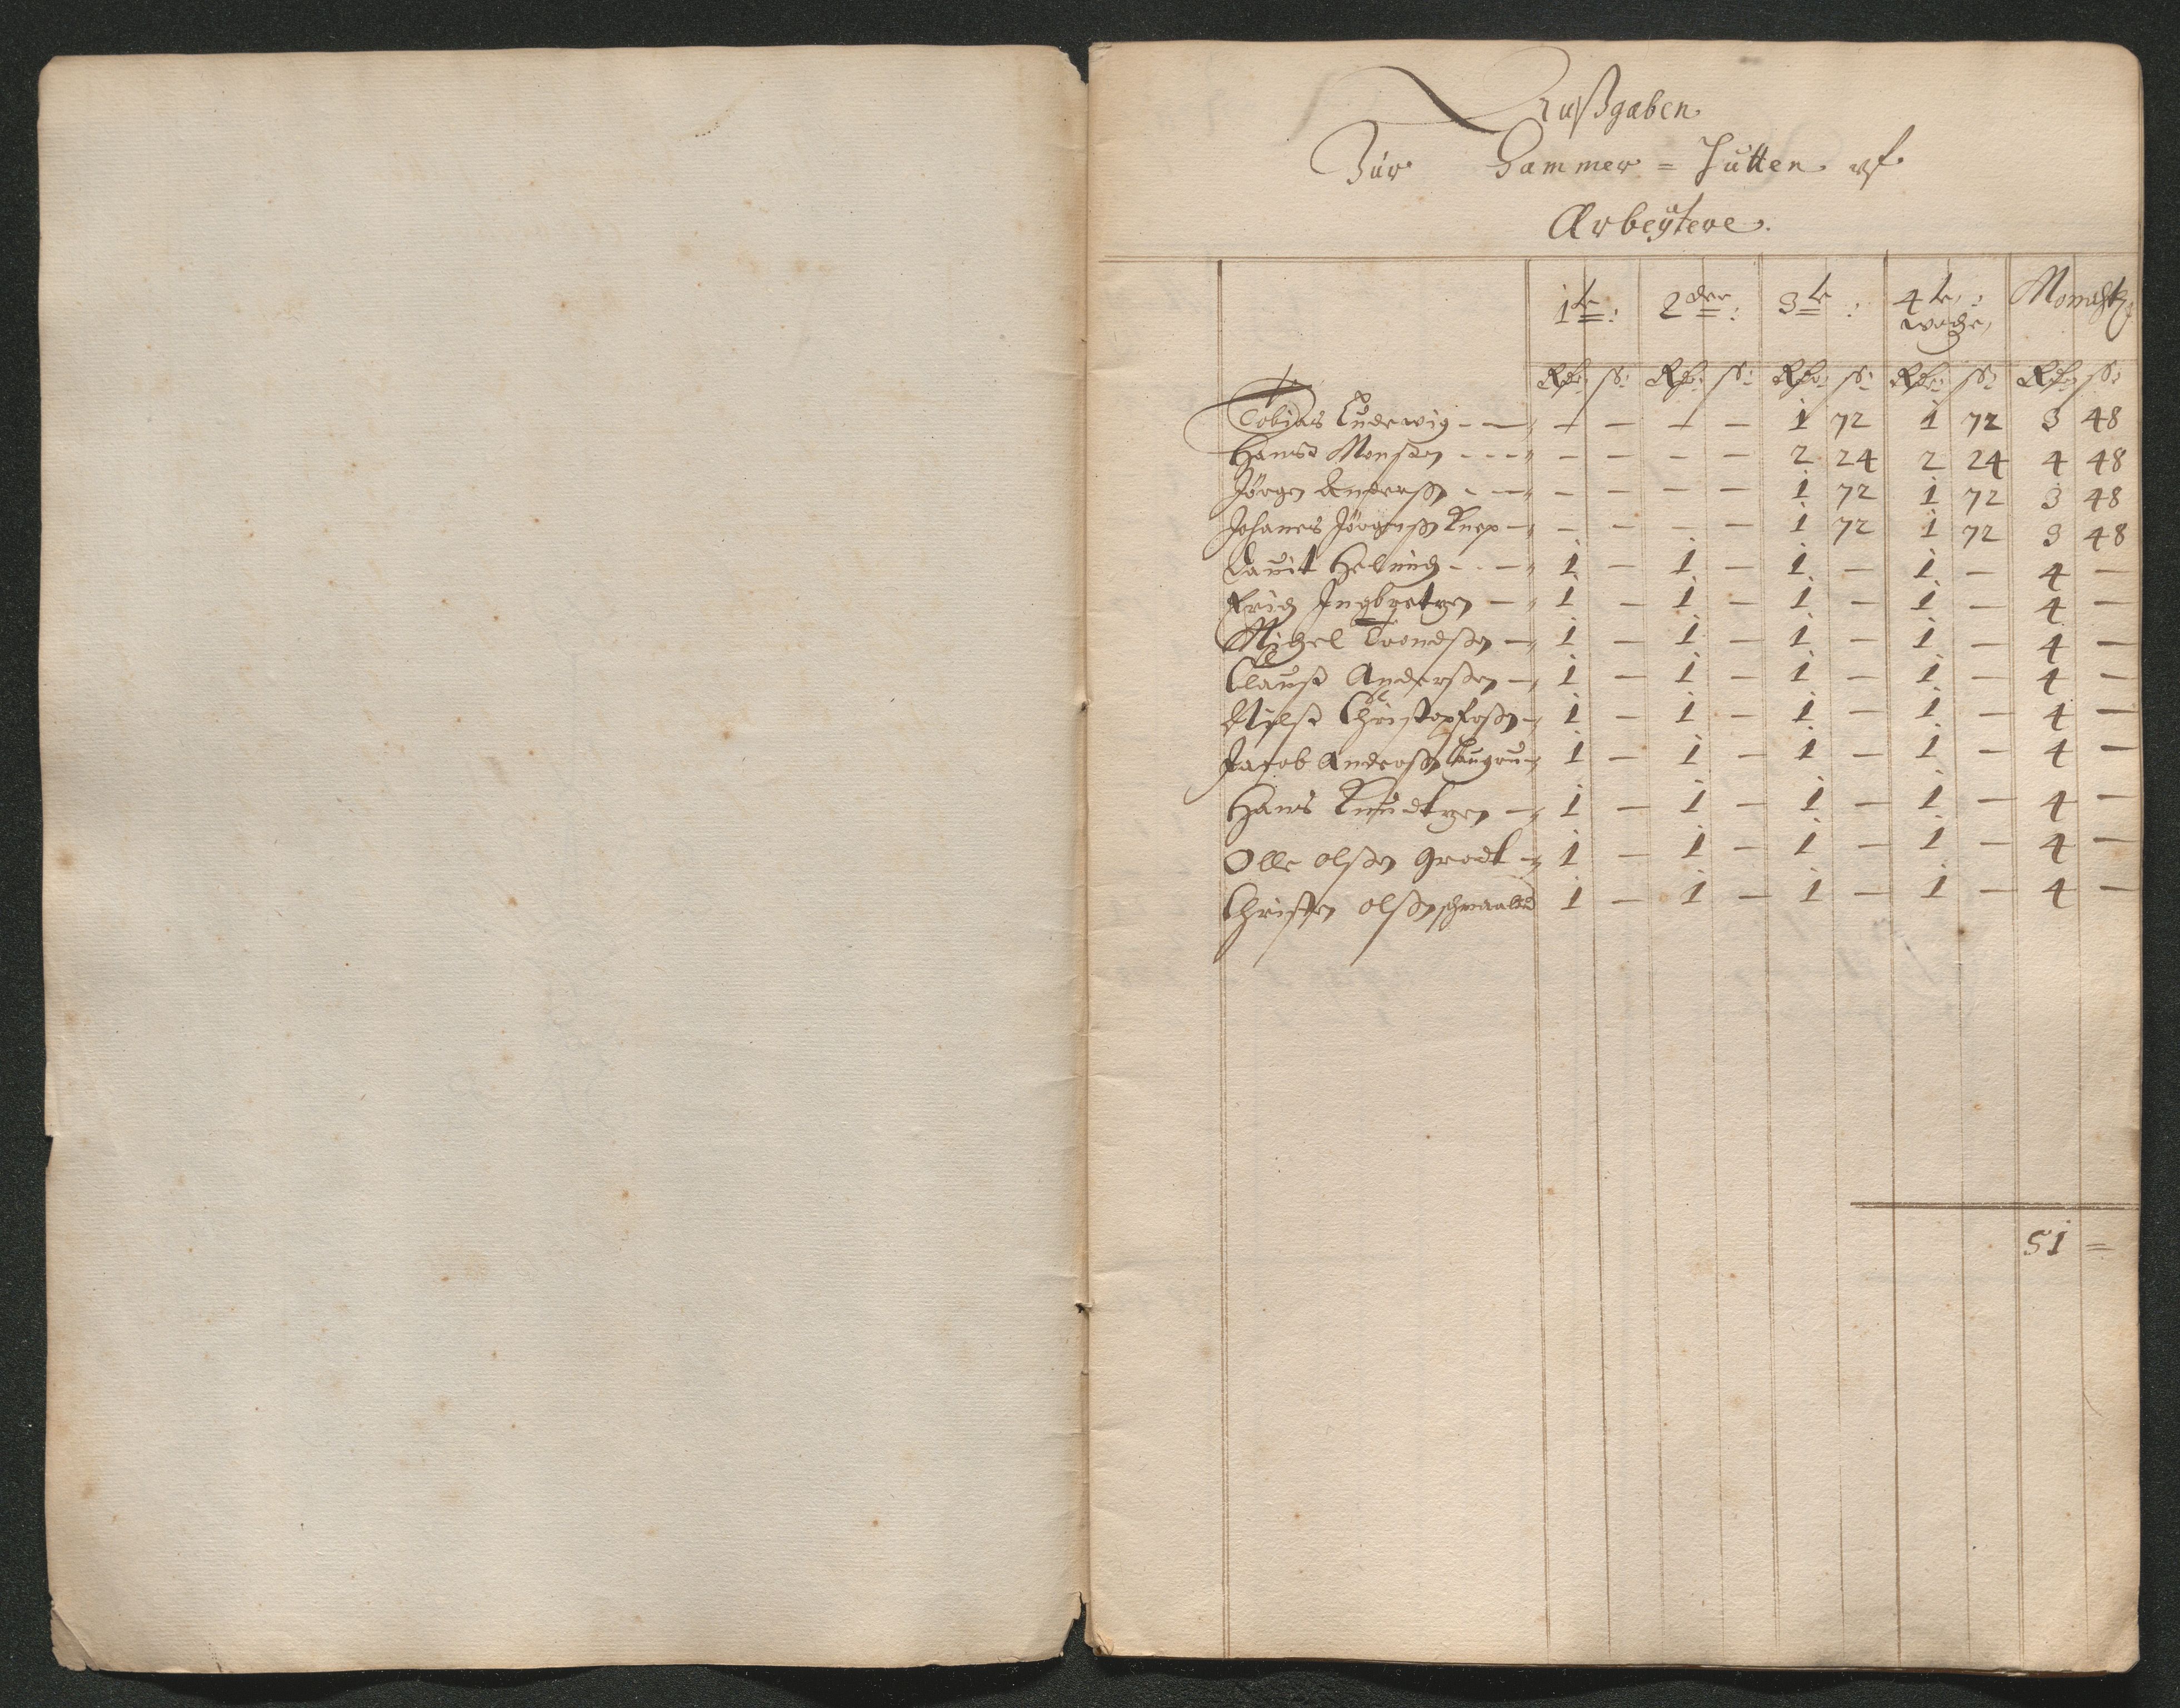 Außgaben
Zur Hammer = Hütten uf
Arbeÿtere.
1te: 2der: 3te: 4te: Monahtz
woche,
Rdr: ß: Rdr: ß: Rdr: ß: Rdr: ß: Rdr: ß:
Tobias Ludewig - — — — — — 1 72 1 72 3 48
Hanss Monsen - - - — — — — 2 24 2 24 4 48
Jörgen Anderß - — — — — — 1 72 1 72 3 48
Johanes Jörgenß Knep — — — — — 1 72 1 72 3 48
Dauit - - — 1 — 1 — 1 — 1 — 4 —
Erich Ingbretzen — 1 — 1 — 1 — 1 — 4 —
Michel Trondsen — 1 — 1 — 1 — 1 — 4 —
Clauss Andersen — 1 — 1 — 1 — 1 — 4 —
Nilss Christopferß — 1 — 1 — 1 — 1 — 4 —
Jacob Anderß — 1 — 1 — 1 — 1 — 4 —
Hans Knudtzen — 1 — 1 — 1 — 1 — 4 —
Olle olsen grodt — 1 — 1 — 1 — 1 — 4 —
Christen olsen 1 — 1 — 1 — 1 — 4 —
51 =